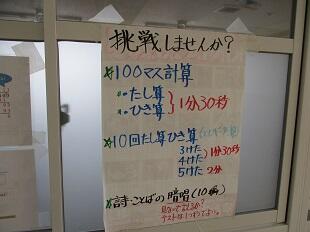 挑戦しませんか?
100マス計算
たし算
ひき算
1分30秒
10回たし算ひき算
3けた
4けた
1分30秒
5けた 2分
詩・ことばの暗唱(10編)